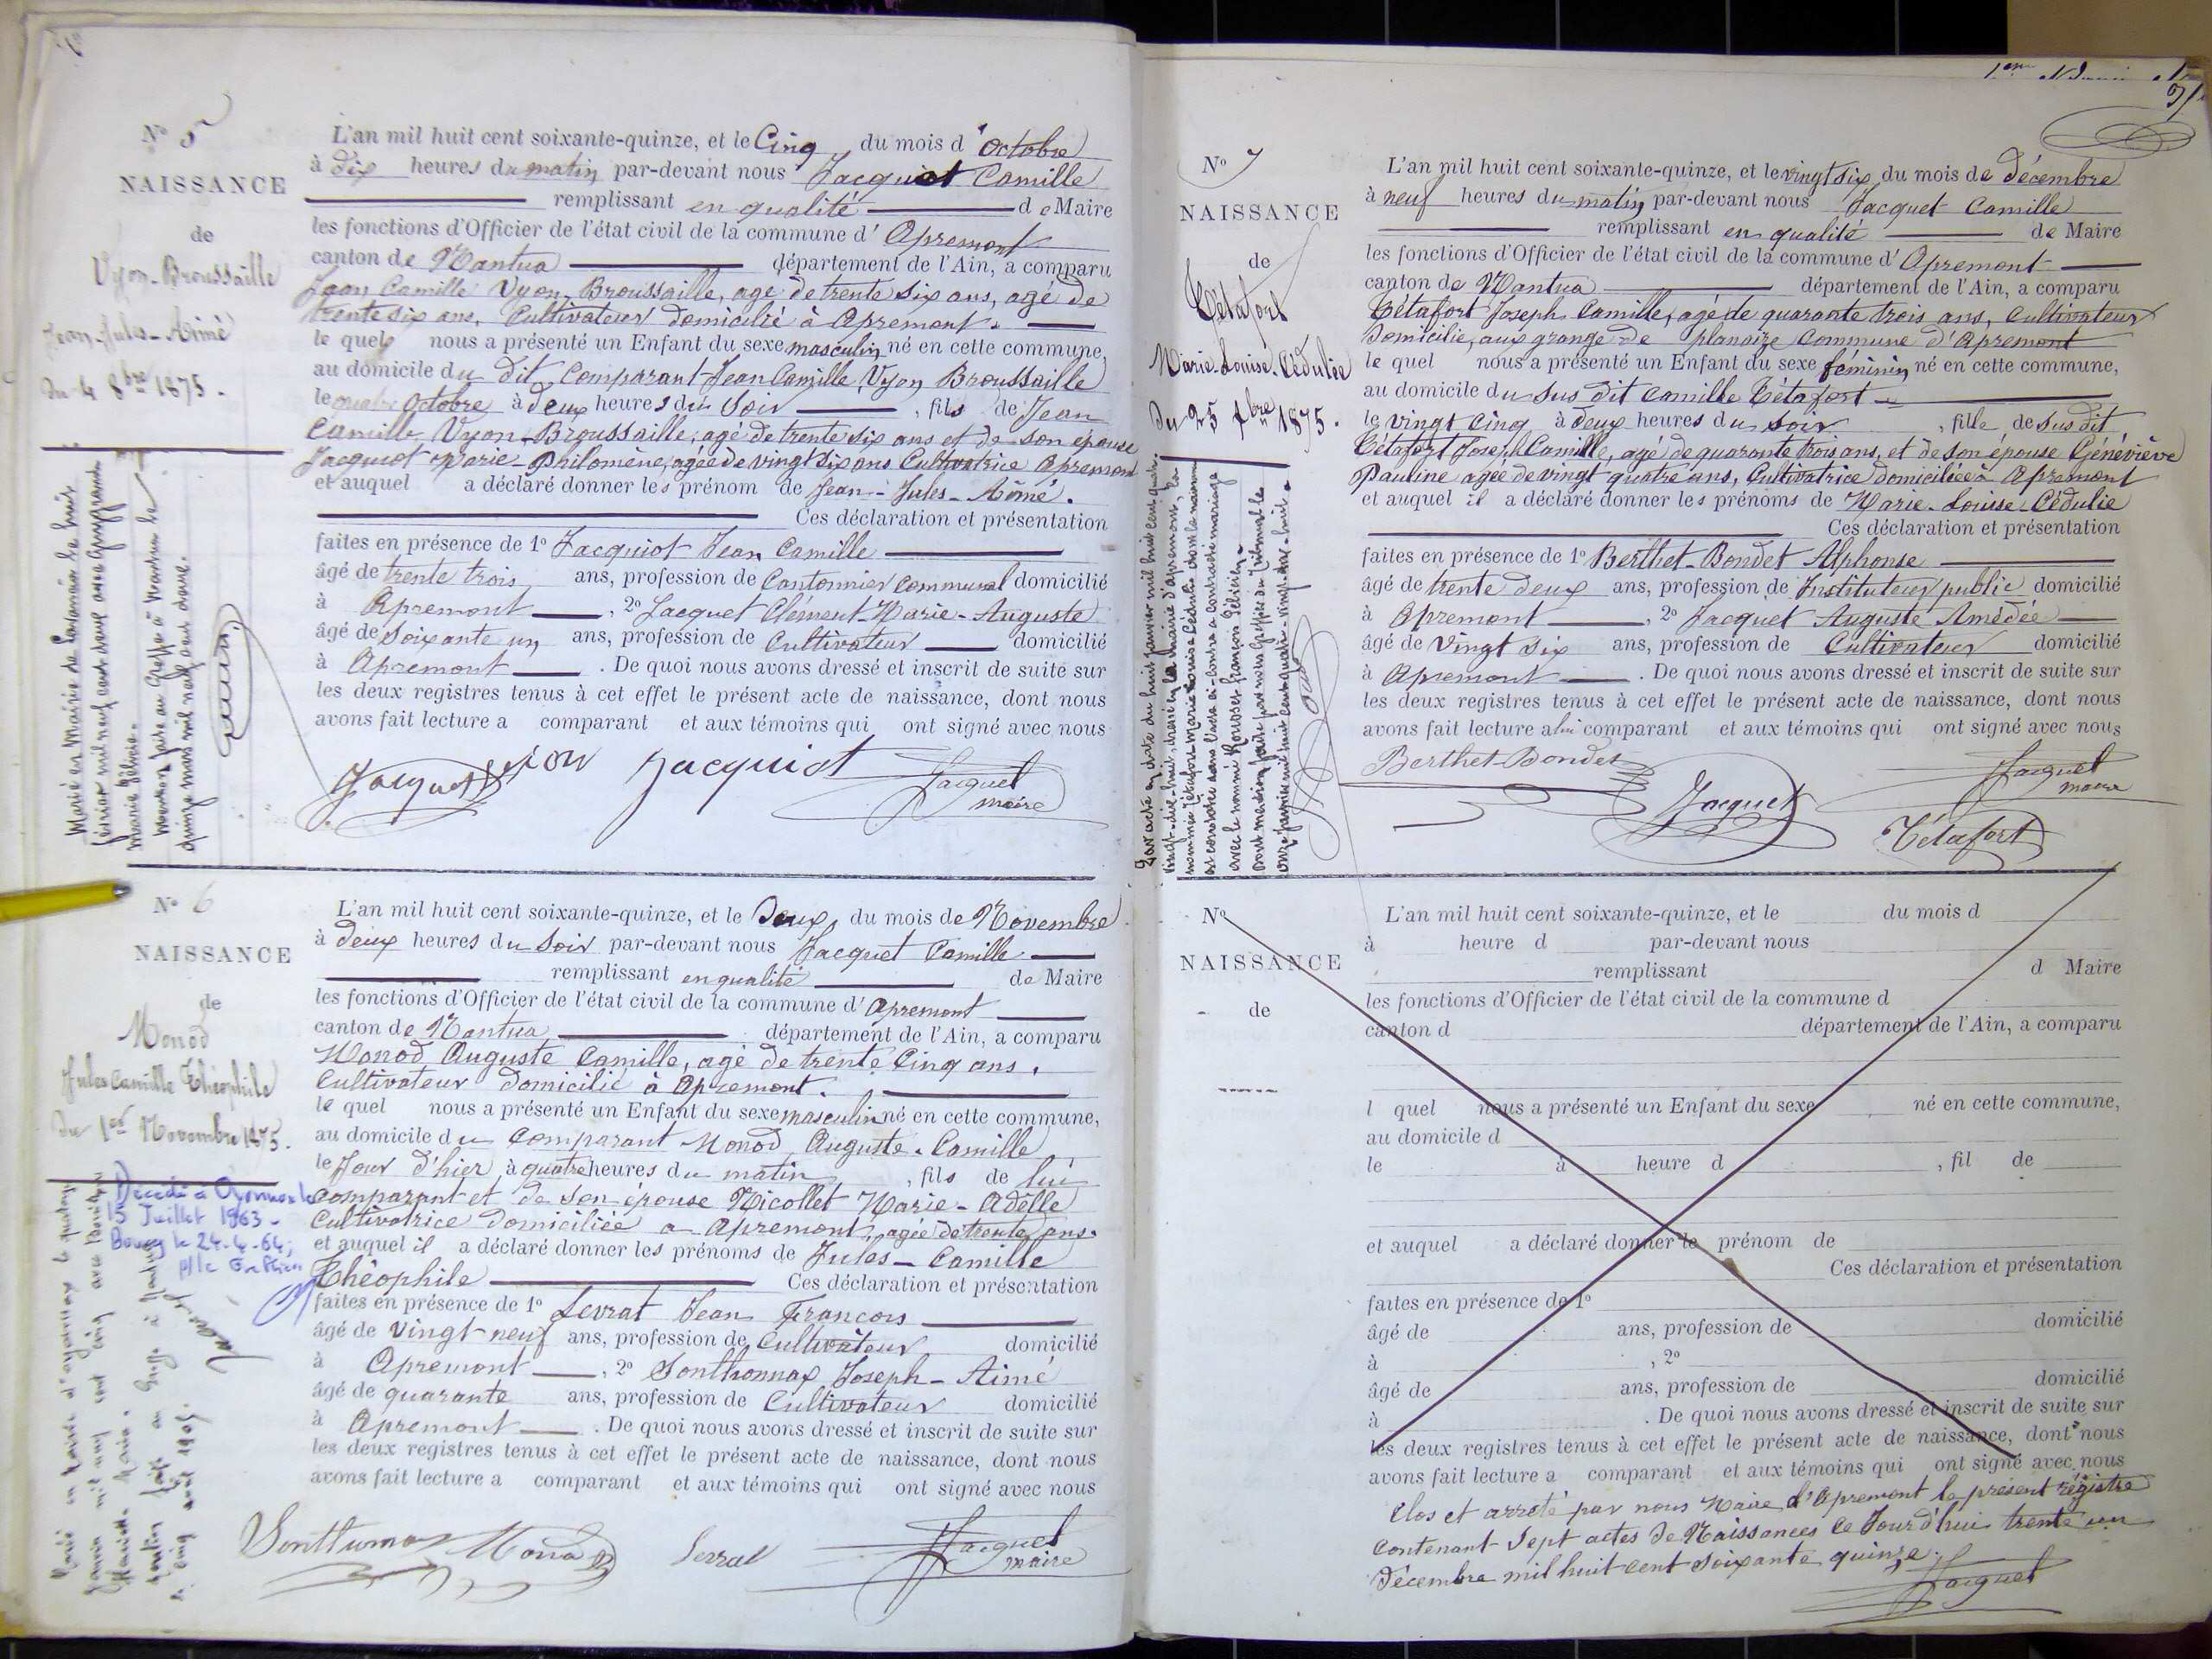 Nº 5
NAISSANCE
de
Vyon-Broussaille
Jean-Jules-Aimé
du 4 8bre 1875.
Marié en Mairie de le huit
février mil neuf cent deux avec
Marie
Mention faite au Greffe à Nantua le
quinze mars mil neuf cent deux.
L'an mil huit cent soixante-quinze, et le Cinq du mois d'octobre
à dix heures du matin par-devant nous Jacquet Camille
remplissant en qualité de Maire
les fonctions d'Officier de l'état civil de la commune d'Apremont
canton de Nantua département de l'Ain, a comparu
Jean Camille Vyon-Broussaille, agé de trente six ans, agé de
trente six ans, Cultivateur domicilié à Apremont.
le quel nous a présenté un Enfant du sexe masculin né en cette commune,
au domicile du dit Comparant Jean Camille Vyon Broussaille
le quatre Octobre à deux heures du Soir , fils de Jean
Camille Vyon-Broussaille, agé de trente six ans et de son épouse
Jacquiot Marie-Philomène, agée de vingt six ans Cultivatrice Apremont
et auquel a déclaré donner les prénom de Jean-Jules-Aimé.
Ces déclaration et présentation
faites en présence de 1º Jacquiot Jean Camille
âgé de trente trois ans, profession de Cantonnier communal domicilié
à Apremont , 2º Jacquet Clément-Marie-Auguste
âgé de Soixante un ans, profession de Cultivateur domicilié
à Apremont . De quoi nous avons dressé et inscrit de suite sur
les deux registres tenus à cet effet le présent acte de naissance, dont nous
avons fait lecture a comparant et aux témoins qui ont signé avec nous
Jacquet Vyon Jacquiot Jacquet
maire
Nº 6
NAISSANCE
de
Monod
Jules Camille Théophile
du 1er Novembre 1875.
Décédé à Oyonnax le
15 Juillet 1963 -
Bourg le 24-4-64;
p/le Greffier
Marié en Mairie d'Oyonnax le quatorze
janvier mil neuf cent cinq avec
Maria.
Mention faite au Greffe à Nantua
le cinq août 1905.
L'an mil huit cent soixante-quinze, et le Deux du mois de Novembre
à deux heures du Soir par-devant nous Jacquet Camille
remplissant en qualité de Maire
les fonctions d'Officier de l'état civil de la commune d'Apremont
canton de Nantua département de l'Ain, a comparu
Monod Auguste Camille, agé de trente Cinq ans,
Cultivateur domicilié à Apremont.
le quel nous a présenté un Enfant du sexe masculin né en cette commune,
au domicile du Comparant Monod Auguste-Camille
le Jour d'hier, à quatre heures du matin , fils de lui
comparant et de son épouse Nicollet Marie-Adèlle
Cultivatrice domiciliée a Apremont, agée de trente ans.
et auquel il a déclaré donner les prénoms de Jules-Camille
Théophile Ces déclaration et présentation
faites en présence de 1º Levrat Jean François
âgé de vingt-neuf ans, profession de Cultivateur domicilié
à Apremont , 2º Sonthonnax Joseph-Aimé
âgé de quarante ans, profession de Cultivateur domicilié
à Apremont . De quoi nous avons dressé et inscrit de suite sur
les deux registres tenus à cet effet le présent acte de naissance, dont nous
avons fait lecture a comparant et aux témoins qui ont signé avec nous
Sonthonnax Monod Levrat Jacquet
maire
Nº 7
NAISSANCE
de
Tétafort
Marie-Louise-Cédulie
du 25 Xbre 1875.
Par acte en date du huit janvier mil huit cent quatre
vingt-dix-huit, dressé en la mairie d'Apremont, la
nommée Tétafort Marie Louise Cédulie dont la naissance
est constatée dans l'acte ci-contre a contracté mariage
avec le nommé François Félicien
dont mention faite par nous Greffier du Tribunal le
onze janvier mil huit cent quatre-vingt-dix-huit
L'an mil huit cent soixante-quinze, et le vingt six du mois de décembre
à neuf heures du matin par-devant nous Jacquet Camille
remplissant en qualité de Maire
les fonctions d'Officier de l'état civil de la commune d'Apremont
canton de Nantua département de l'Ain, a comparu
Tétafort Joseph Camille, agé de quarante trois ans, Cultivateur
Domicilié, aux grange de planoize Commune d'Apremont
le quel nous a présenté un Enfant du sexe féminin né en cette commune,
au domicile du sus dit Camille Tétafort
le vingt cinq à deux heures du soir , fille de sus dit
Tétafort Joseph Camille, agé de quarante trois ans, et de son épouse Généviève
Pauline agée de vingt quatre ans, Cultivatrice domiciliée à Apremont
et auquel il a déclaré donner les prénoms de Marie-Louise-Cédulie
Ces déclaration et présentation
faites en présence de 1º Berthet-Bondet Alphonse
âgé de trente deux ans, profession de Instituteur public domicilié
à Apremont , 2º Jacquet Auguste Amédée
âgé de vingt six ans, profession de Cultivateur domicilié
à Apremont . De quoi nous avons dressé et inscrit de suite sur
les deux registres tenus à cet effet le présent acte de naissance, dont nous
avons fait lecture a lui comparant et aux témoins qui ont signé avec nous
Berthet-Bondet Jacquet Jacquet
maire
Tétafort
Nº
NAISSANCE
de
L'an mil huit cent soixante-quinze, et le du mois d
à heure d par-devant nous
remplissant d Maire
les fonctions d'Officier de l'état civil de la commune d
canton d département de l'Ain, a comparu
l quel nous a présenté un Enfant du sexe né en cette commune,
au domicile d
le à heure d , fil de
et auquel a déclaré donner le prénom de
Ces déclaration et présentation
faites en présence de 1º
âgé de ans, profession de domicilié
à , 2º
âgé de ans, profession de domicilié
à . De quoi nous avons dressé et inscrit de suite sur
les deux registres tenus à cet effet le présent acte de naissance, dont nous
avons fait lecture a comparant et aux témoins qui ont signé avec nous
Clos et arrêté par nous Maire d'Apremont le présent régistre
contenant Sept actes de Naissances ce Jourd'hui trente un
Décembre mil huit cent soixante quinze.
Jacquet